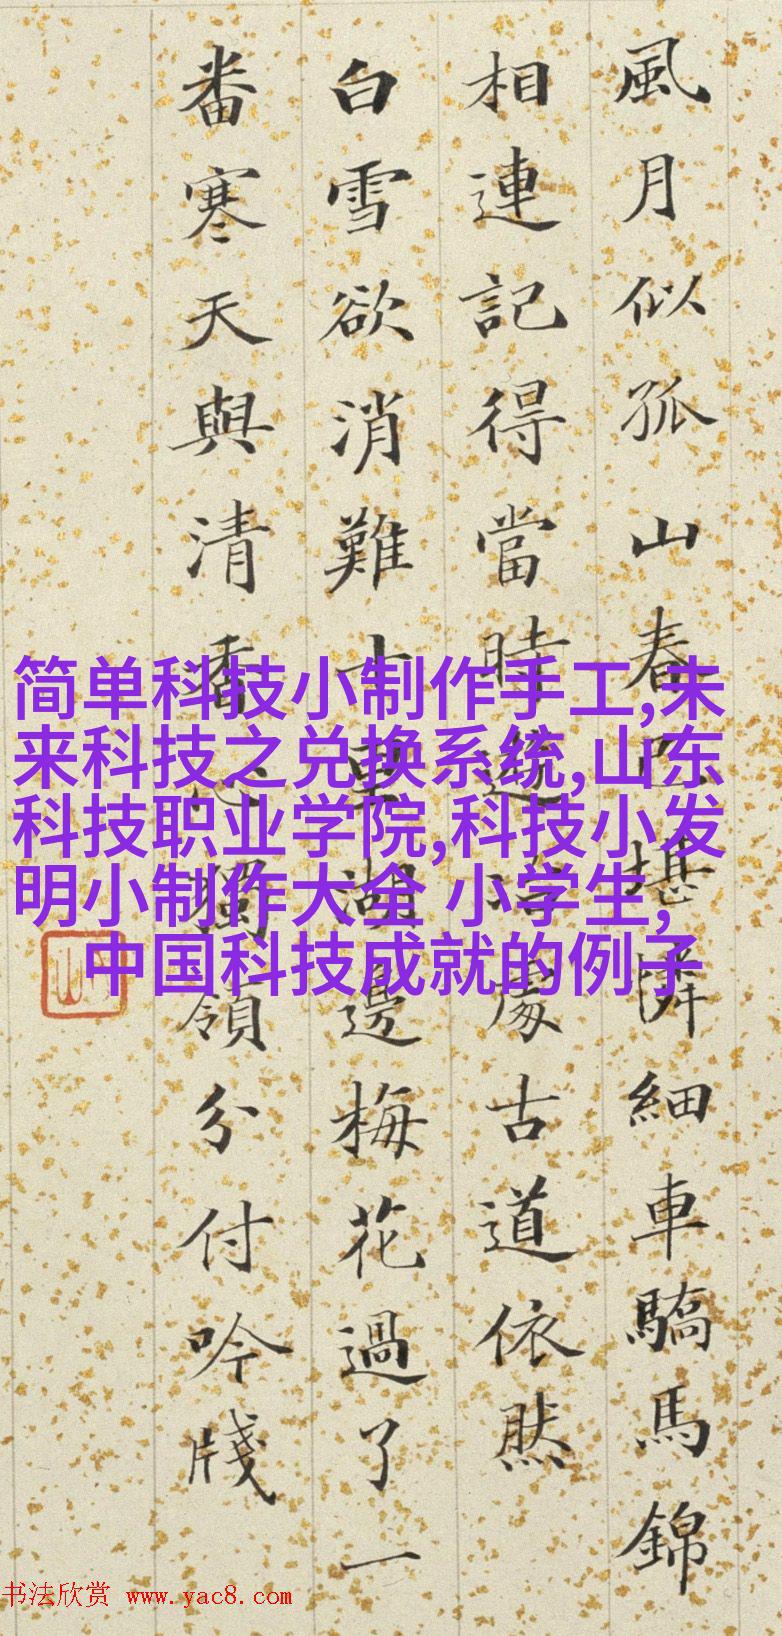 風月似孤山春已堪憐細車驕馬錦
相連記得當時遊冶處古道依然
白雪欲消難十里湖邊梅花過了一
番寒天與清香心獨領分付吟牋
简单科技小制作手工,未
来科技之兑换系统,山东
科技职业学院,科技小发
明小制作大全 小学生,
中国科技成就的例子
书法欣赏 www.yac8.com